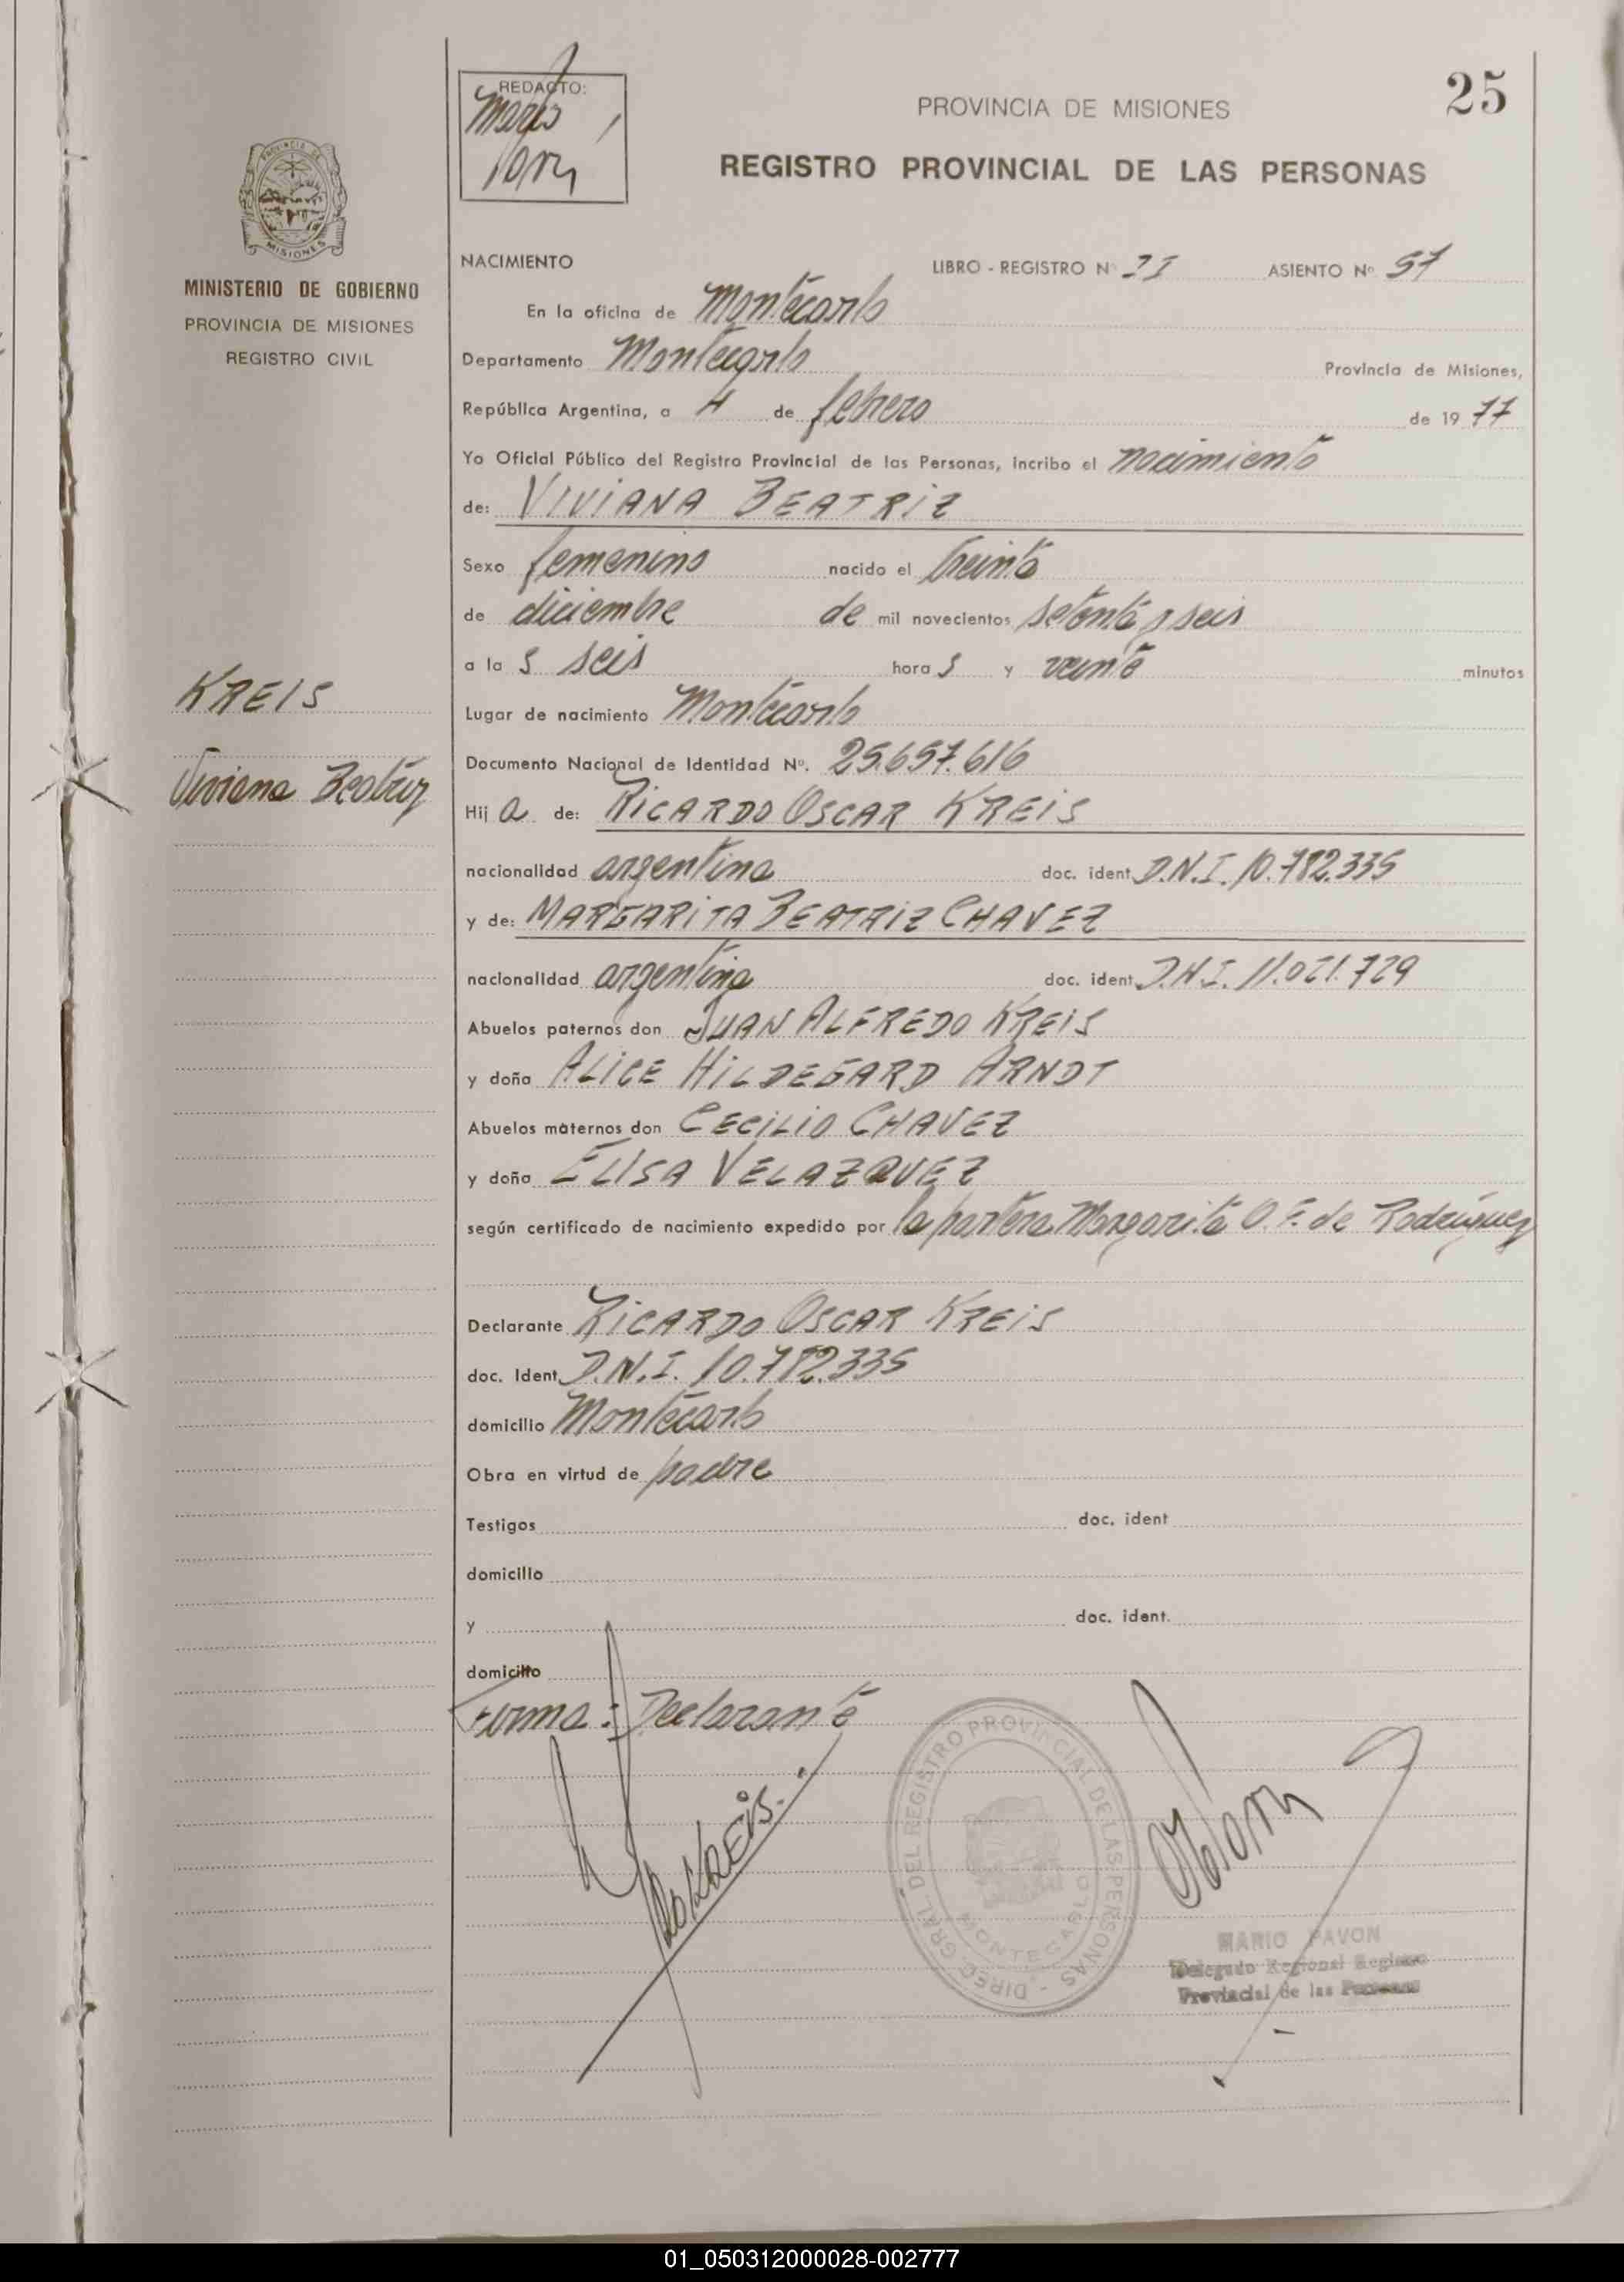 25
REDACTO:
PROVINCIA DE MISIONES
REGISTRO PROVINCIAL DE LAS PERSONAS
MINISTERIO DE GOBIERNO
PROVINCIA DE MISIONES
REGISTRO CIVIL
KREIS
Viviana Beatriz
NACIMIENTO LIBRO - REGISTRO Nº ASIENTO Nº 57
En la oficina de Montecarlo
Departamento Montecarlo Provincia de Misiones,
República Argentina, a 4 de febrero de 1977
Yo Oficial Público del Registro Provincial de las Personas, incribo el nacimiento
de: VIVIANA BEATRIZ
Sexo femenino nacido el treinta
de diciembre de mil novecientos setenta y seis
a la s seis hora s y veinte minutos
Lugar de nacimiento Montecarlo
Documento Nacional de Identidad Nº. 25.657.616
Hij a de: RICARDO OSCAR KREIS
nacionalidad argentina doc. ident D.N.I. 10.782.335
y de: MARGARITA BEATRIZ CHAVEZ
nacionalidad argentina doc. ident D.N.I. 11.021.729
Abuelos paternos don JUAN ALFREDO KREIS
y doña ALICE HILDEGARD ARNDT
Abuelos maternos don CECILIO CHAVEZ
y doña ELISA VELAZQUEZ
según certificado de nacimiento expedido por la partera Margarita O. F. de Rodriguez
Declarante RICARDO OSCAR KREIS
doc. Ident D.N.I. 10.782.335
domicilio Montecarlo
Obra en virtud de padre
Testigos doc. ident
domicilio
y doc. ident.
domicilio
Firma: Declarante
KREIS
DIREC. GRAL. DEL REGISTRO PROVINCIAL DE LAS PERSONAS -
MONTECARLO
MARIO PAVON
Delegado Regional Registro
Provincial de las Personas
01_050312000028-002777